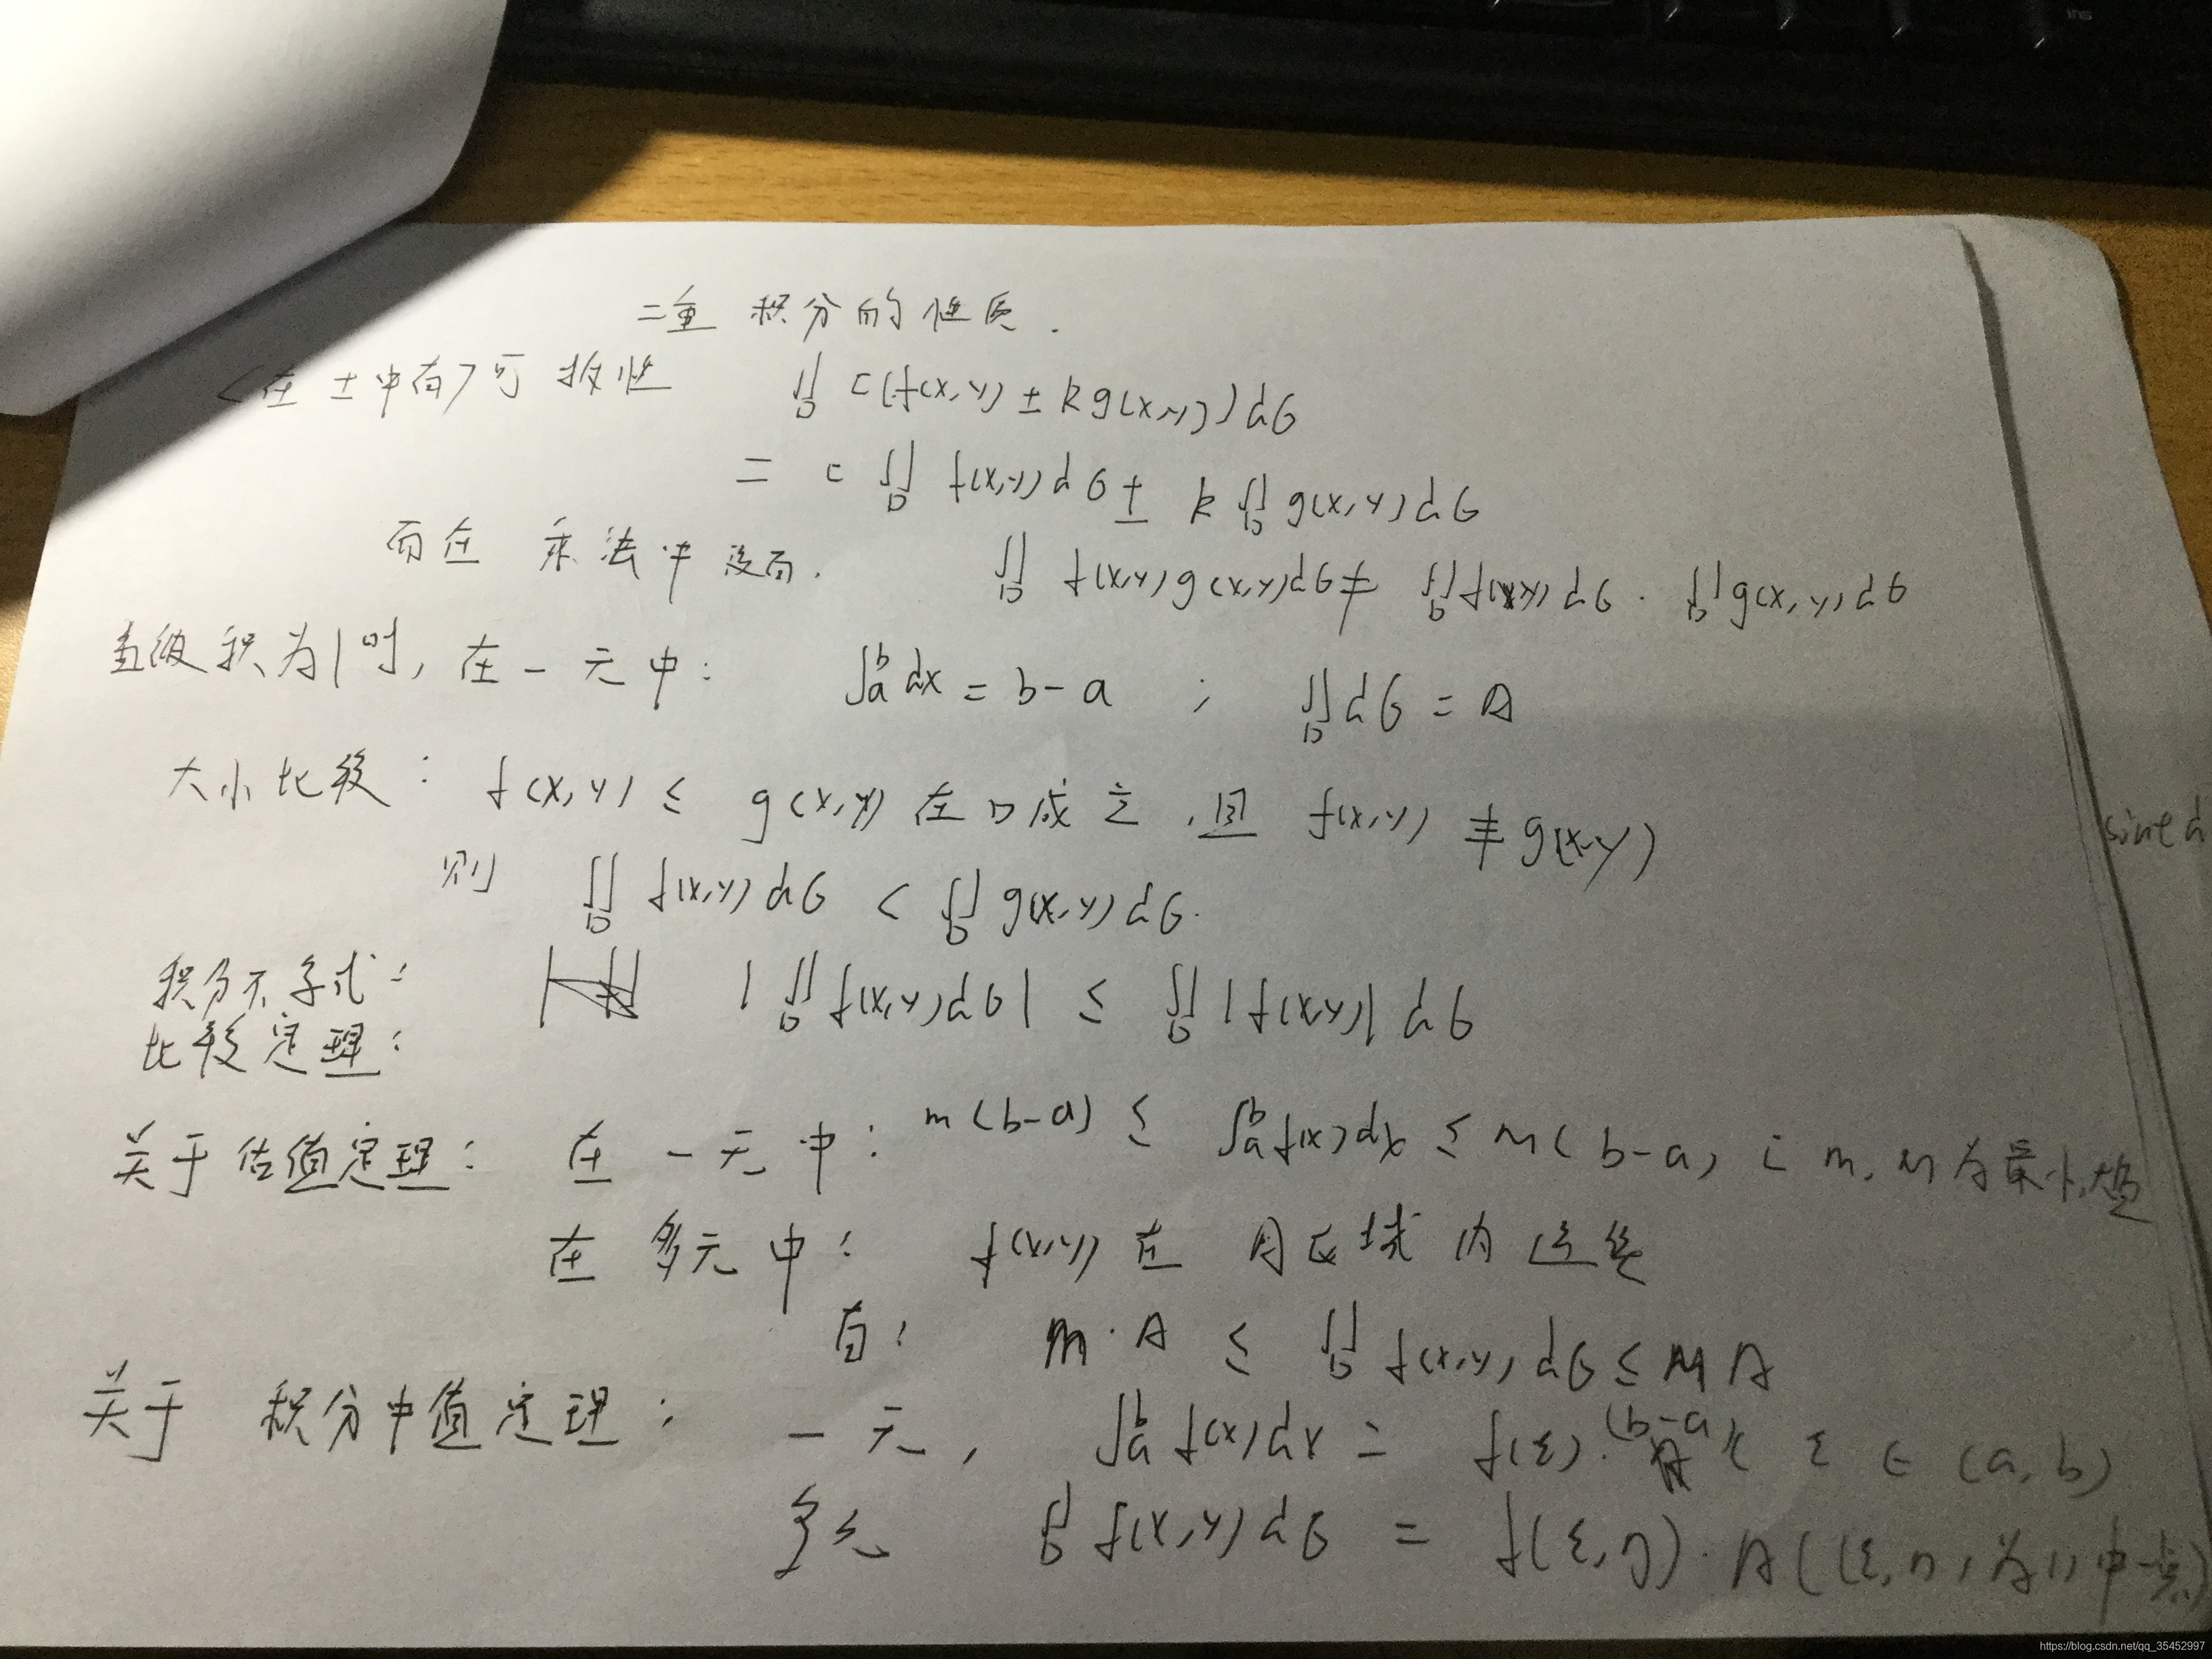 二重积分的性质.
<在±中有>可拆性 ∬D c(f(x,y) ± kg(x,y))dσ
= c ∬D f(x,y)dσ ± k ∬D g(x,y)dσ
而在乘法中没有. ∬D f(x,y)g(x,y)dσ ≠ ∬D f(x,y)dσ · ∬D g(x,y)dσ
当被积为1时, 在一元中: ∫ₐᵇ dx = b-a ; ∬D dσ = A
大小比较: f(x,y) ≤ g(x,y) 在D成立, 且 f(x,y) ≢ g(x,y)
则 ∬D f(x,y)dσ < ∬D g(x,y)dσ.
积分不等式: |∬D f(x,y)dσ| ≤ ∬D |f(x,y)| dσ
比较定理:
关于估值定理: 在一元中: m(b-a) ≤ ∫ₐᵇ f(x)dx ≤ M(b-a) ; m, M为最小,大值
在多元中: f(x,y) 在 A区域内连续
有: m·A ≤ ∬D f(x,y)dσ ≤ MA
关于积分中值定理: 一元, ∫ₐᵇ f(x)dx = f(ξ)·(b-a) ξ ∈ (a,b)
多元 ∬D f(x,y)dσ = f(ξ,η)·A((ξ,η)为D中一点)
https://blog.csdn.net/qq_35452997